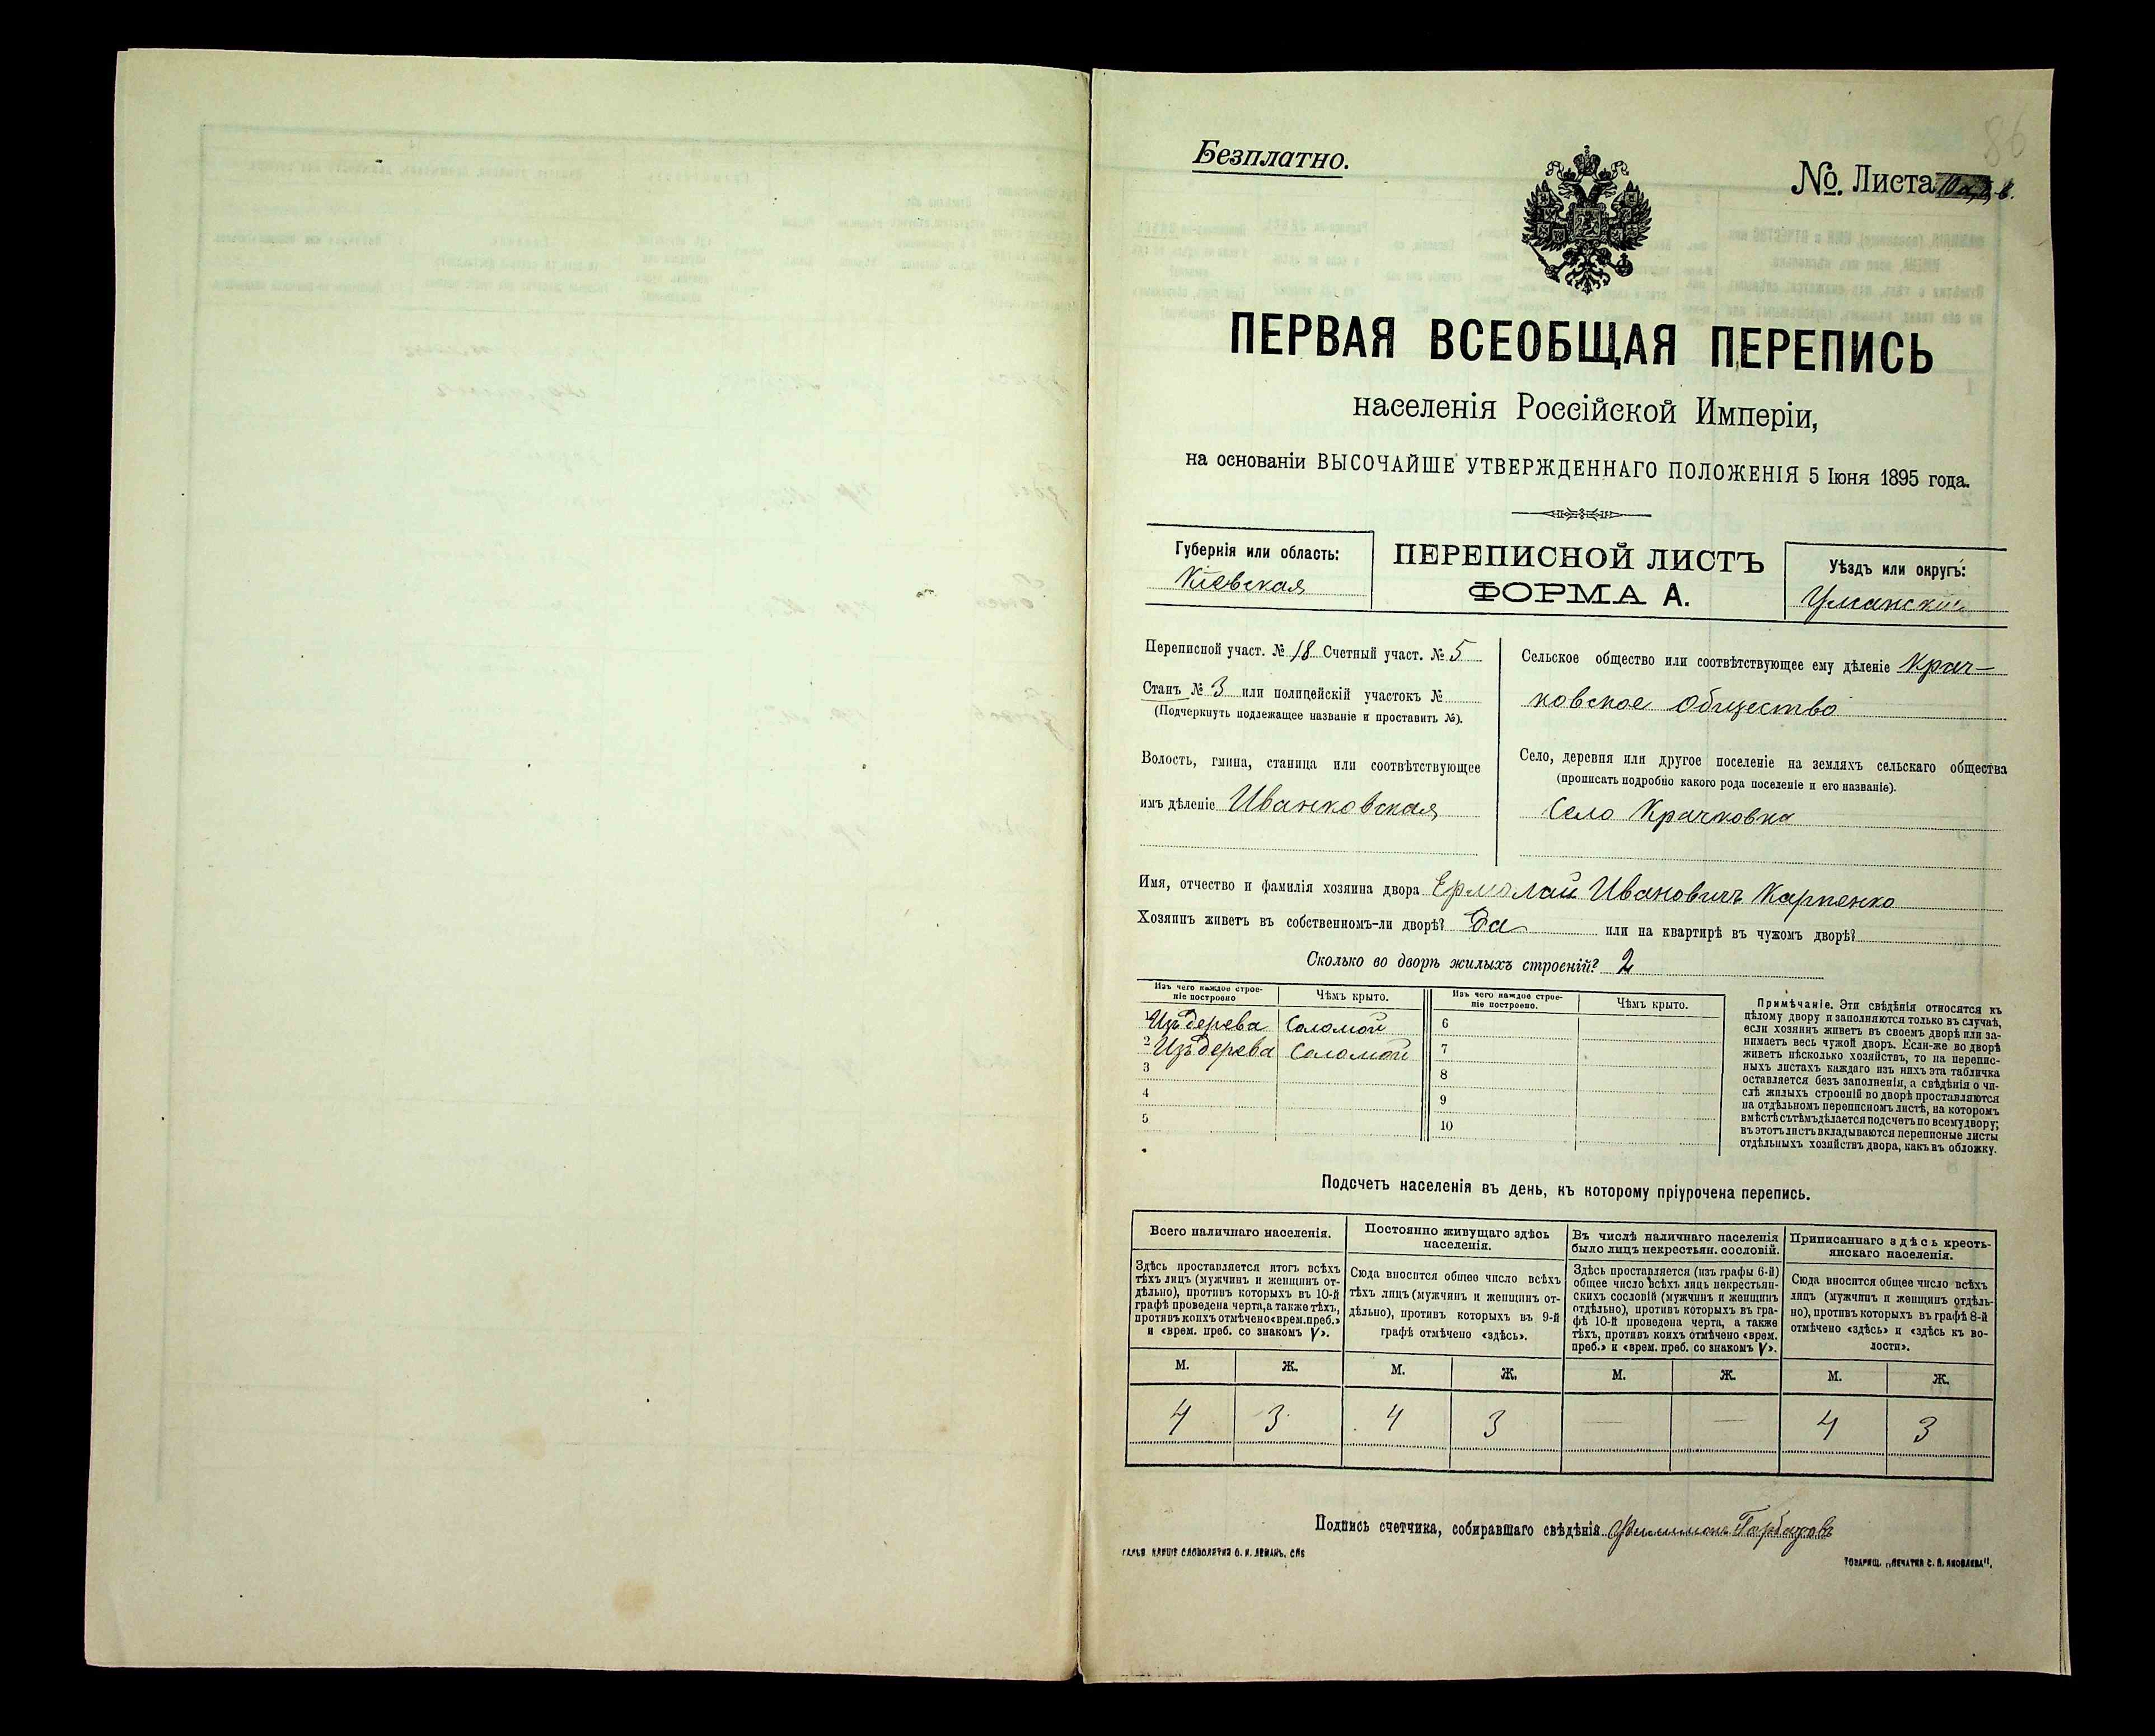 86
Безплатно.
№ Листа
ПЕРВАЯ ВСЕОБЩАЯ ПЕРЕПИСЬ
населенія Россійской Имперіи,
на основаніи ВЫСОЧАЙШЕ УТВЕРЖДЕННАГО ПОЛОЖЕНІЯ 5 Іюня 1895 года.
Губернія или область:
Кіевская
ПЕРЕПИСНОЙ ЛИСТЪ
ФОРМА А.
Уѣздъ или округъ:
Уманскій
Переписной участ. № 18 Счетный участ. № 5
Станъ № 3 или полицейскій участокъ №
(Подчеркнуть подлежащее названіе и проставить №).
Волость, гмина, станица или соотвѣтствующее
имъ дѣленіе Иванковская
Сельское общество или соотвѣтствующее ему дѣленіе Крач-
ковское общество
Село, деревня или другое поселеніе на земляхъ сельскаго общества
(прописать подробно какого рода поселеніе и его названіе).
Село Крачковка
Имя, отчество и фамилія хозяина двора Ермолай Ивановичъ Карпенко
Хозяинъ живетъ въ собственномъ-ли дворѣ? Да или на квартирѣ въ чужомъ дворѣ?
Сколько во дворѣ жилыхъ строеній? 2
Изъ чего каждое строе-
ніе построено
Чѣмъ крыто.
1 Изъ дерева Соломой
2 Изъ дерева Соломой
3
4
5
Изъ чего каждое строе-
ніе построено.
Чѣмъ крыто.
6
7
8
9
10
Примѣчаніе. Эти свѣдѣнія относятся къ
цѣлому двору и заполняются только въ случаѣ,
если хозяинъ живетъ въ своемъ дворѣ или за-
нимаетъ весь чужой дворъ. Если-же во дворѣ
живетъ нѣсколько хозяйствъ, то на перепис-
ныхъ листахъ каждаго изъ нихъ эта табличка
оставляется безъ заполненія, а свѣдѣнія о чи-
слѣ жилыхъ строеній во дворѣ проставляются
на отдѣльномъ переписномъ листѣ, на которомъ
вмѣстѣ съ тѣмъ дѣлается подсчетъ по всему двору;
въ этотъ листъ вкладываются переписные листы
отдѣльныхъ хозяйствъ двора, какъ въ обложку.
Подсчетъ населенія въ день, къ которому пріурочена перепись.
Всего наличнаго населенія.
Здѣсь проставляется итогъ всѣхъ
тѣхъ лицъ (мужчинъ и женщинъ от-
дѣльно), противъ которыхъ въ 10-й
графѣ проведена черта, а также тѣхъ,
противъ коихъ отмѣчено «врем. преб.»
и «врем. преб. со знакомъ V».
Постоянно живущаго здѣсь
населенія.
Сюда вносится общее число всѣхъ
тѣхъ лицъ (мужчинъ и женщинъ от-
дѣльно), противъ которыхъ въ 9-й
графѣ отмѣчено «здѣсь».
Въ числѣ наличнаго населенія
было лицъ некрестьян. сословій.
Здѣсь проставляется (изъ графы 6-й)
общее число всѣхъ лицъ некрестьян-
скихъ сословій (мужчинъ и женщинъ
отдѣльно), противъ которыхъ въ гра-
фѣ 10-й проведена черта, а также
тѣхъ, противъ коихъ отмѣчено «врем.
преб.» и «врем. преб. со знакомъ V».
Приписаннаго здѣсь кресть-
янскаго населенія.
Сюда вносится общее число всѣхъ
лицъ (мужчинъ и женщинъ отдѣль-
но), противъ которыхъ въ графѣ 8-й
отмѣчено «здѣсь» и «здѣсь къ во-
лости».
М. Ж. М. Ж. М. Ж. М. Ж.
4 3 4 3 — — 4 3
Подпись счетчика, собиравшаго свѣдѣнія Филимонъ
СЛОВОЛИТНЯ О. И. ЛЕМАНЪ, СПБ
ТОВАРИЩ. „ПЕЧАТНЯ С. П. ЯКОВЛЕВА".